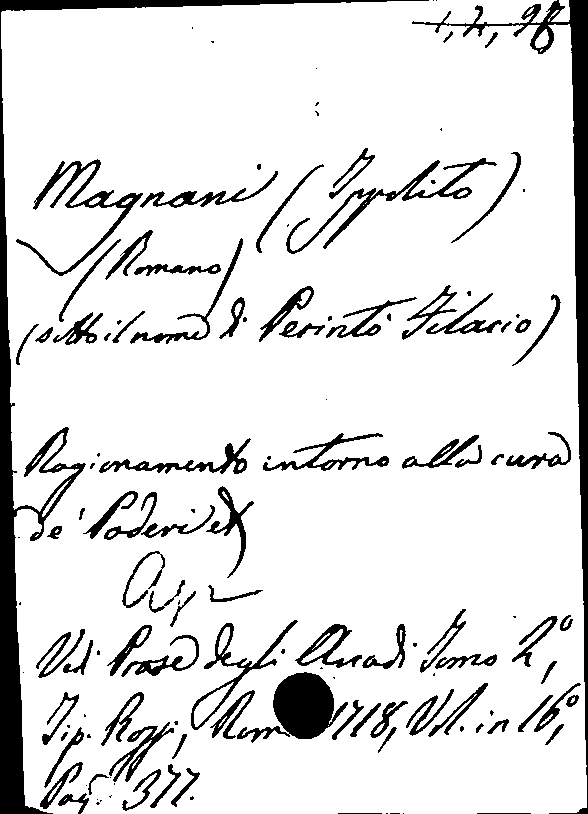 1, 2, 98
Magnani (Ippolito).
(Romano)
(sotto il nome di Perinto Filacio)
Ragionamento intorno alla cura
de' Poderi
Vedi Prose degli Arcadi Tomo 2º,
Tip. Rossi, Roma 1718, Vol. in 16º,
Pag. 377.